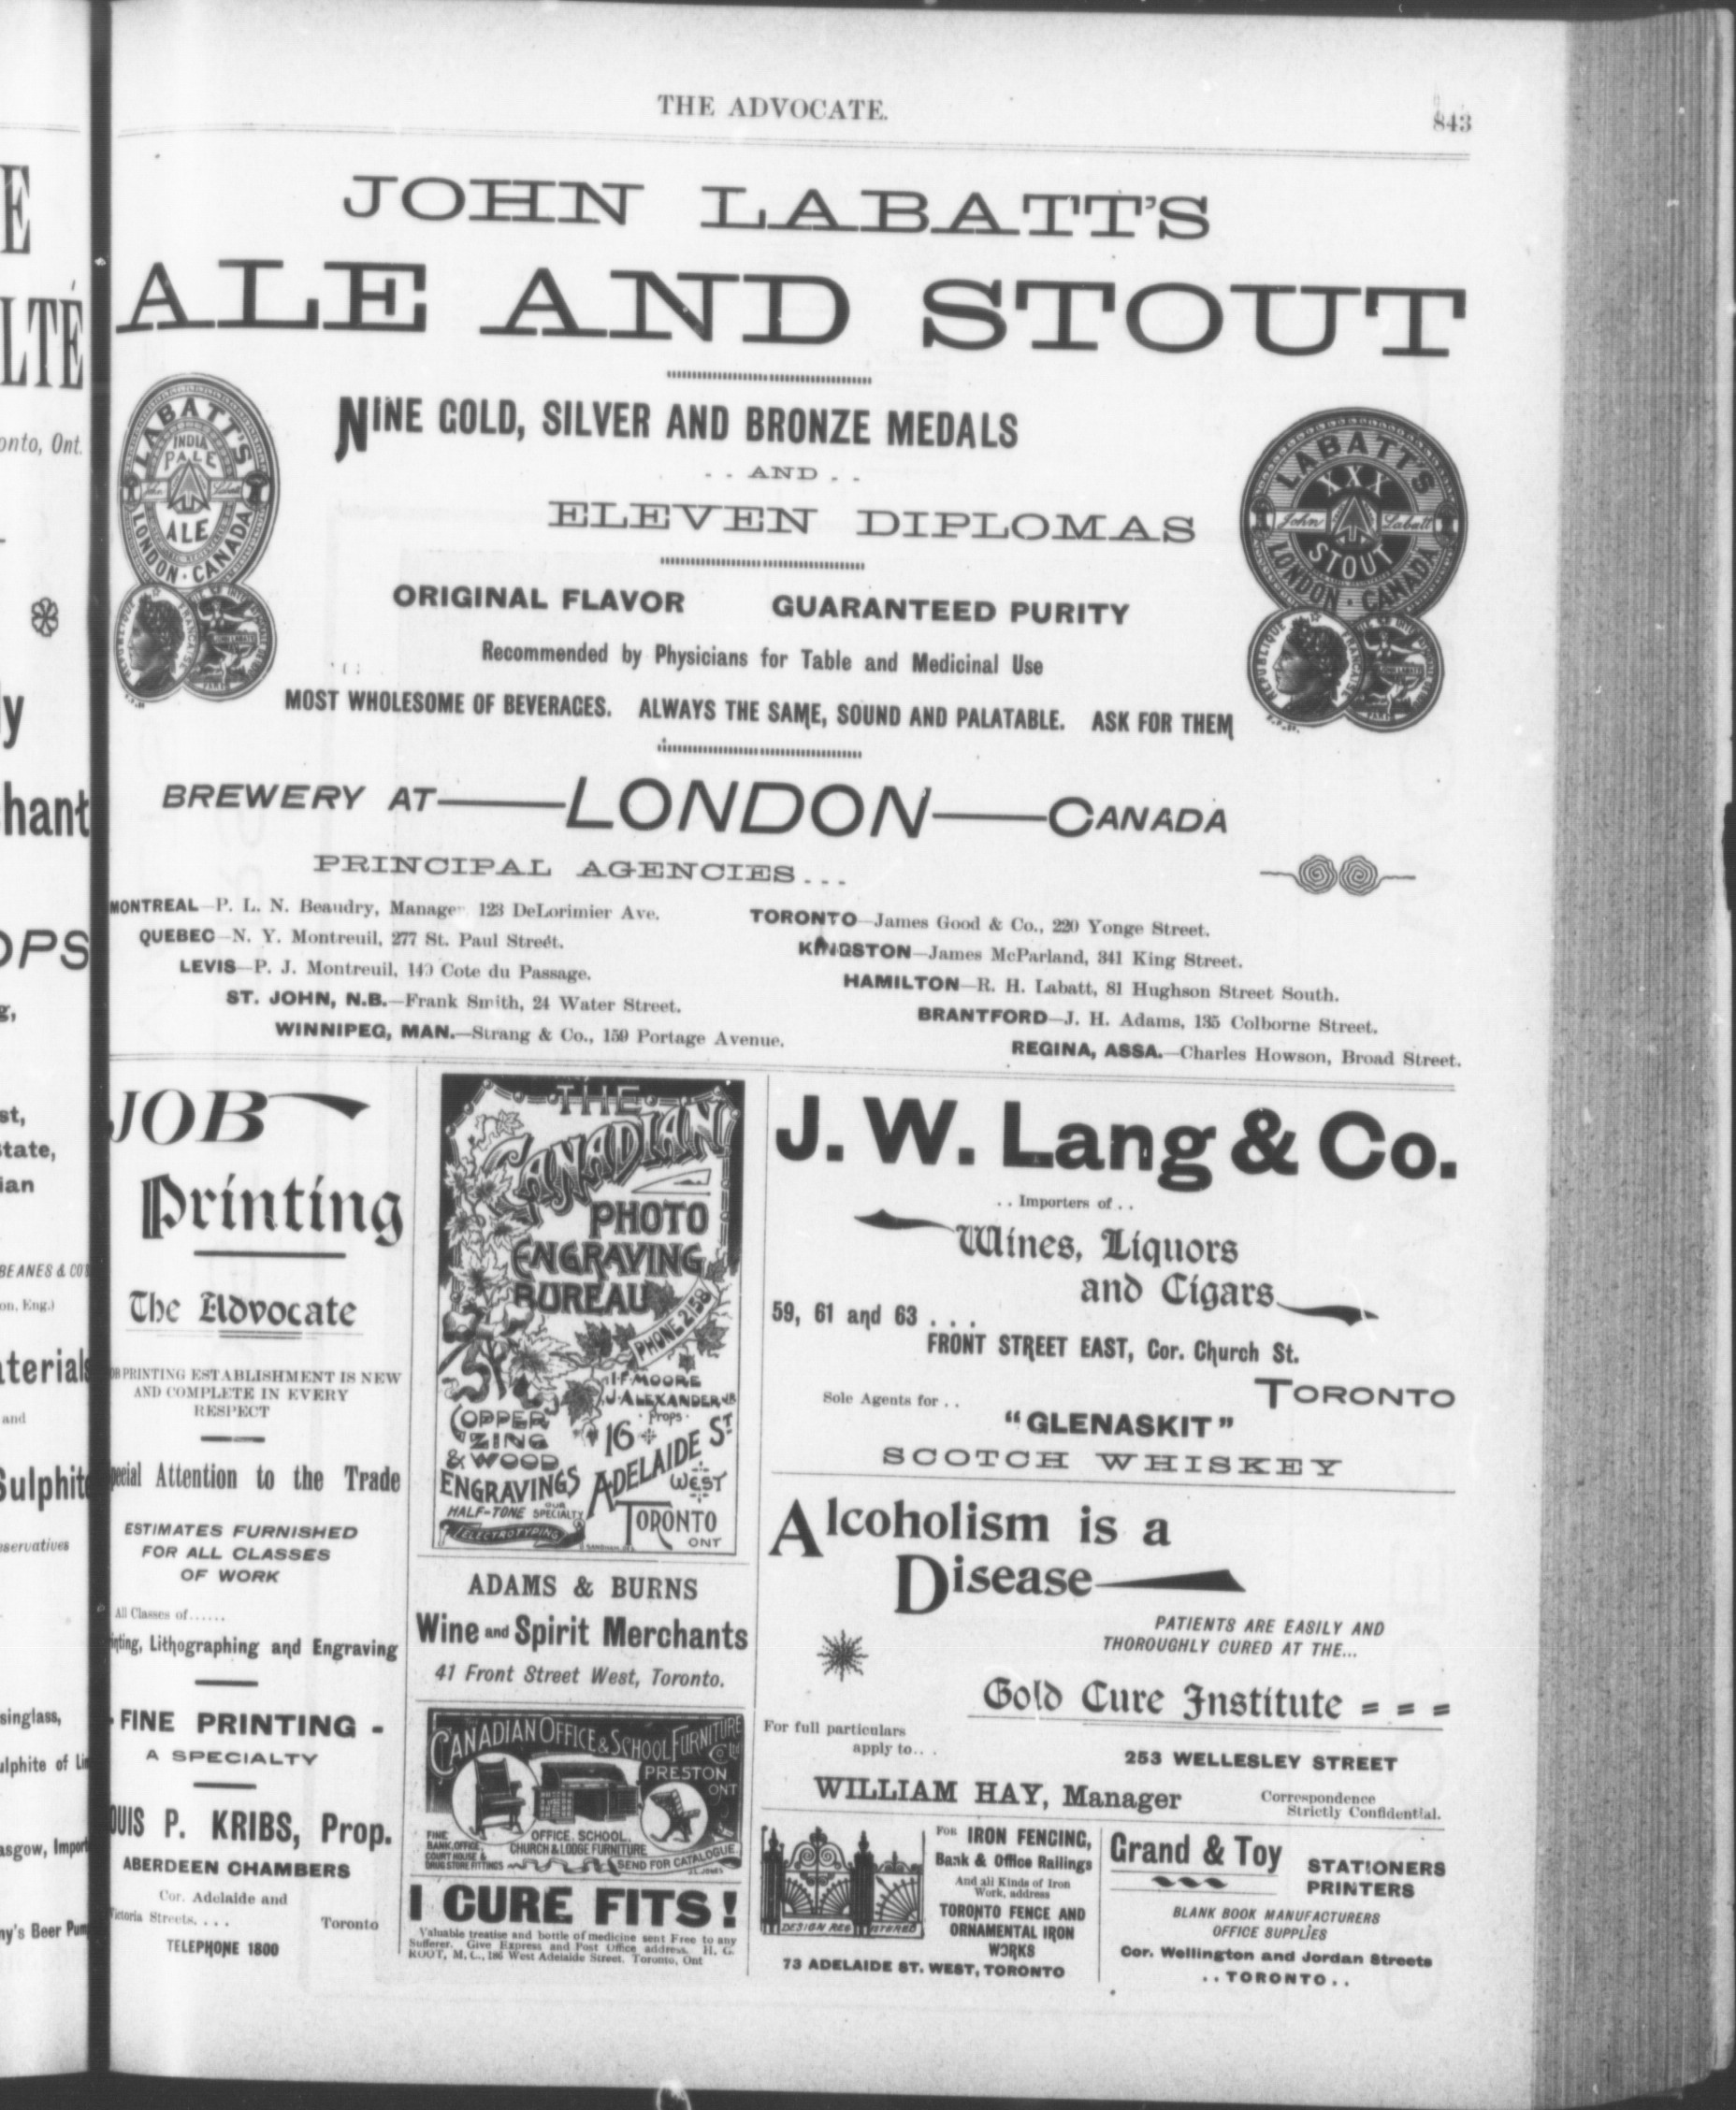 THE ADVOCATE.
843
JOHN LABATT'S
ALE AND STOUT
NINE GOLD, SILVER AND BRONZE MEDALS
. . AND . .
ELEVEN DIPLOMAS
LABATT'S
INDIA
PALE
John Labatt
ALE
LONDON · CANADA
REPUBLIQUE FRANCAISE
LABATT'S
XXX
John Labatt
STOUT
LONDON · CANADA
REPUBLIQUE FRANCAISE
ORIGINAL FLAVOR GUARANTEED PURITY
Recommended by Physicians for Table and Medicinal Use
MOST WHOLESOME OF BEVERAGES. ALWAYS THE SAME, SOUND AND PALATABLE. ASK FOR THEM
BREWERY AT—LONDON—CANADA
PRINCIPAL AGENCIES...
MONTREAL—P. L. N. Beaudry, Manager 123 DeLorimier Ave.
QUEBEC—N. Y. Montreuil, 277 St. Paul Street.
LEVIS—P. J. Montreuil, 140 Cote du Passage.
ST. JOHN, N.B.—Frank Smith, 24 Water Street.
WINNIPEG, MAN.—Strang & Co., 159 Portage Avenue.
TORONTO—James Good & Co., 220 Yonge Street.
KINGSTON—James McParland, 341 King Street.
HAMILTON—R. H. Labatt, 81 Hughson Street South.
BRANTFORD—J. H. Adams, 135 Colborne Street.
REGINA, ASSA.—Charles Howson, Broad Street.
JOB
Printing
The Advocate
OB PRINTING ESTABLISHMENT IS NEW
AND COMPLETE IN EVERY
RESPECT
pecial Attention to the Trade
ESTIMATES FURNISHED
FOR ALL CLASSES
OF WORK
All Classes of......
inting, Lithographing and Engraving
- FINE PRINTING -
A SPECIALTY
OUIS P. KRIBS, Prop.
ABERDEEN CHAMBERS
Cor. Adelaide and
Victoria Streets. . . . Toronto
TELEPHONE 1800
THE
CANADIAN
PHOTO
ENGRAVING
BUREAU
PHONE 2158
H·F·MOORE
J·ALEXANDER JR
·Props·
COPPER
ZINC
& WOOD
ENGRAVINGS
HALF-TONE OUR SPECIALTY
ELECTROTYPING
16
ADELAIDE ST
WEST
TORONTO
ONT
ADAMS & BURNS
Wine and Spirit Merchants
41 Front Street West, Toronto.
CANADIAN OFFICE & SCHOOL FURNITURE
CO LTD
PRESTON
ONT
FINE
BANK, OFFICE,
COURT HOUSE &
DRUG STORE FITTINGS
OFFICE, SCHOOL,
CHURCH & LODGE FURNITURE
SEND FOR CATALOGUE
I CURE FITS!
Valuable treatise and bottle of medicine sent Free to any
Sufferer. Give Express and Post Office address. H. G.
ROOT, M. C., 186 West Adelaide Street. Toronto, Ont
J. W. Lang & Co.
. . Importers of . .
Wines, Liquors
and Cigars
59, 61 and 63 . . .
FRONT STREET EAST, Cor. Church St.
TORONTO
Sole Agents for . .
"GLENASKIT"
SCOTCH WHISKEY
Alcoholism is a
Disease
PATIENTS ARE EASILY AND
THOROUGHLY CURED AT THE...
Gold Cure Institute = = =
For full particulars
apply to.. .
253 WELLESLEY STREET
WILLIAM HAY, Manager
Correspondence
Strictly Confidential.
DESIGN REGISTERED
FOR IRON FENCING,
Bank & Office Railings
And all Kinds of Iron
Work, address
TORONTO FENCE AND
ORNAMENTAL IRON
WORKS
73 ADELAIDE ST. WEST, TORONTO
Grand & Toy
STATIONERS
PRINTERS
BLANK BOOK MANUFACTURERS
OFFICE SUPPLIES
Cor. Wellington and Jordan Streets
. . TORONTO . .